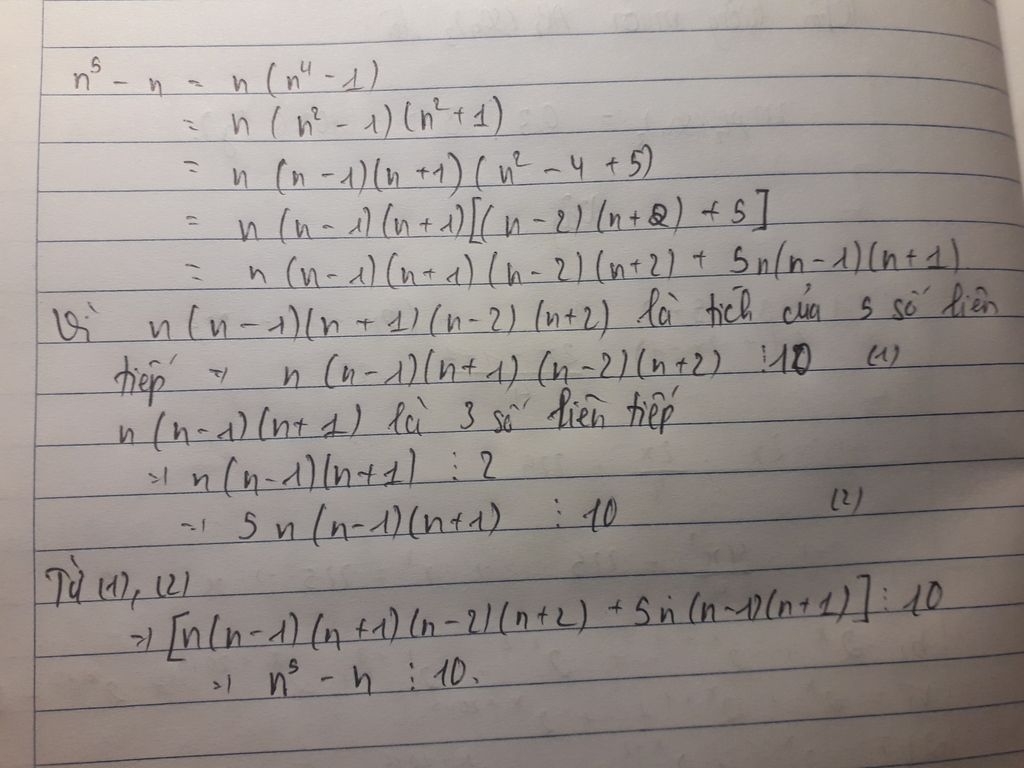 n⁵ - n = n (n⁴ - 1)
= n (n² - 1)(n² + 1)
= n (n - 1)(n + 1)(n² - 4 + 5)
= n (n - 1)(n + 1)[(n - 2)(n + 2) + 5]
= n (n - 1)(n + 1)(n - 2)(n + 2) + 5n(n - 1)(n + 1)
Vì n (n - 1)(n + 1)(n - 2)(n + 2) là tích của 5 số liên
tiếp => n (n - 1)(n + 1)(n - 2)(n + 2) ⋮ 10 (1)
n (n - 1)(n + 1) là 3 số liên tiếp
=> n (n - 1)(n + 1) ⋮ 2
=> 5n (n - 1)(n + 1) ⋮ 10 (2)
Từ (1), (2)
=> [n(n - 1)(n + 1)(n - 2)(n + 2) + 5n(n - 1)(n + 1)] ⋮ 10
=> n⁵ - n ⋮ 10.